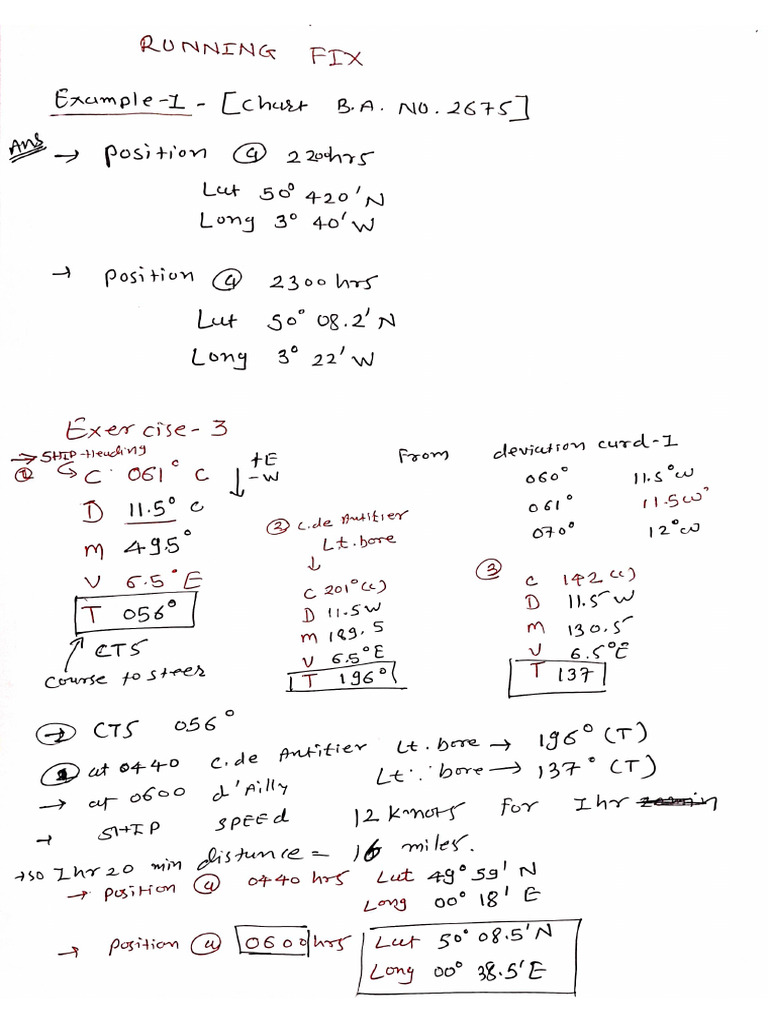 RUNNING FIX
Example-1 - [Chart B.A. NO. 2675]
Ans
→ Position @ 2200hrs
Lat 50° 420'N
Long 3° 40'W
→ Position @ 2300hrs
Lat 50° 08.2'N
Long 3° 22'W
Exercise-3
→ SHIP Heading
① C 061° C ↓ +E -W
D 11.5° C
M 495°
V 6.5°E
T 056°
CTS
Course to steer
From deviation curd-1
060° 11.5°W
061° 11.5W°
070° 12°W
② C.de Antifier
Lt. bore
↓
C 201°(c)
D 11.5W
M 189.5
V 6.5°E
T 196°
③
C 142(c)
D 11.5W
M 130.5
V 6.5°E
T 137
→ CTS 056°
at 0440 C.de Antifier Lt. bore → 196° (T)
→ at 0600 d'Ailly Lt. bore → 137° (T)
→ SHIP SPEEd 12 Knots for 1hr
→ so 1hr 20 min distance = 16 miles.
→ Position @ 0440 hrs Lat 49° 59' N
Long 00° 18' E
→ Position @ 0600hrs Lat 50° 08.5'N
Long 00° 38.5'E